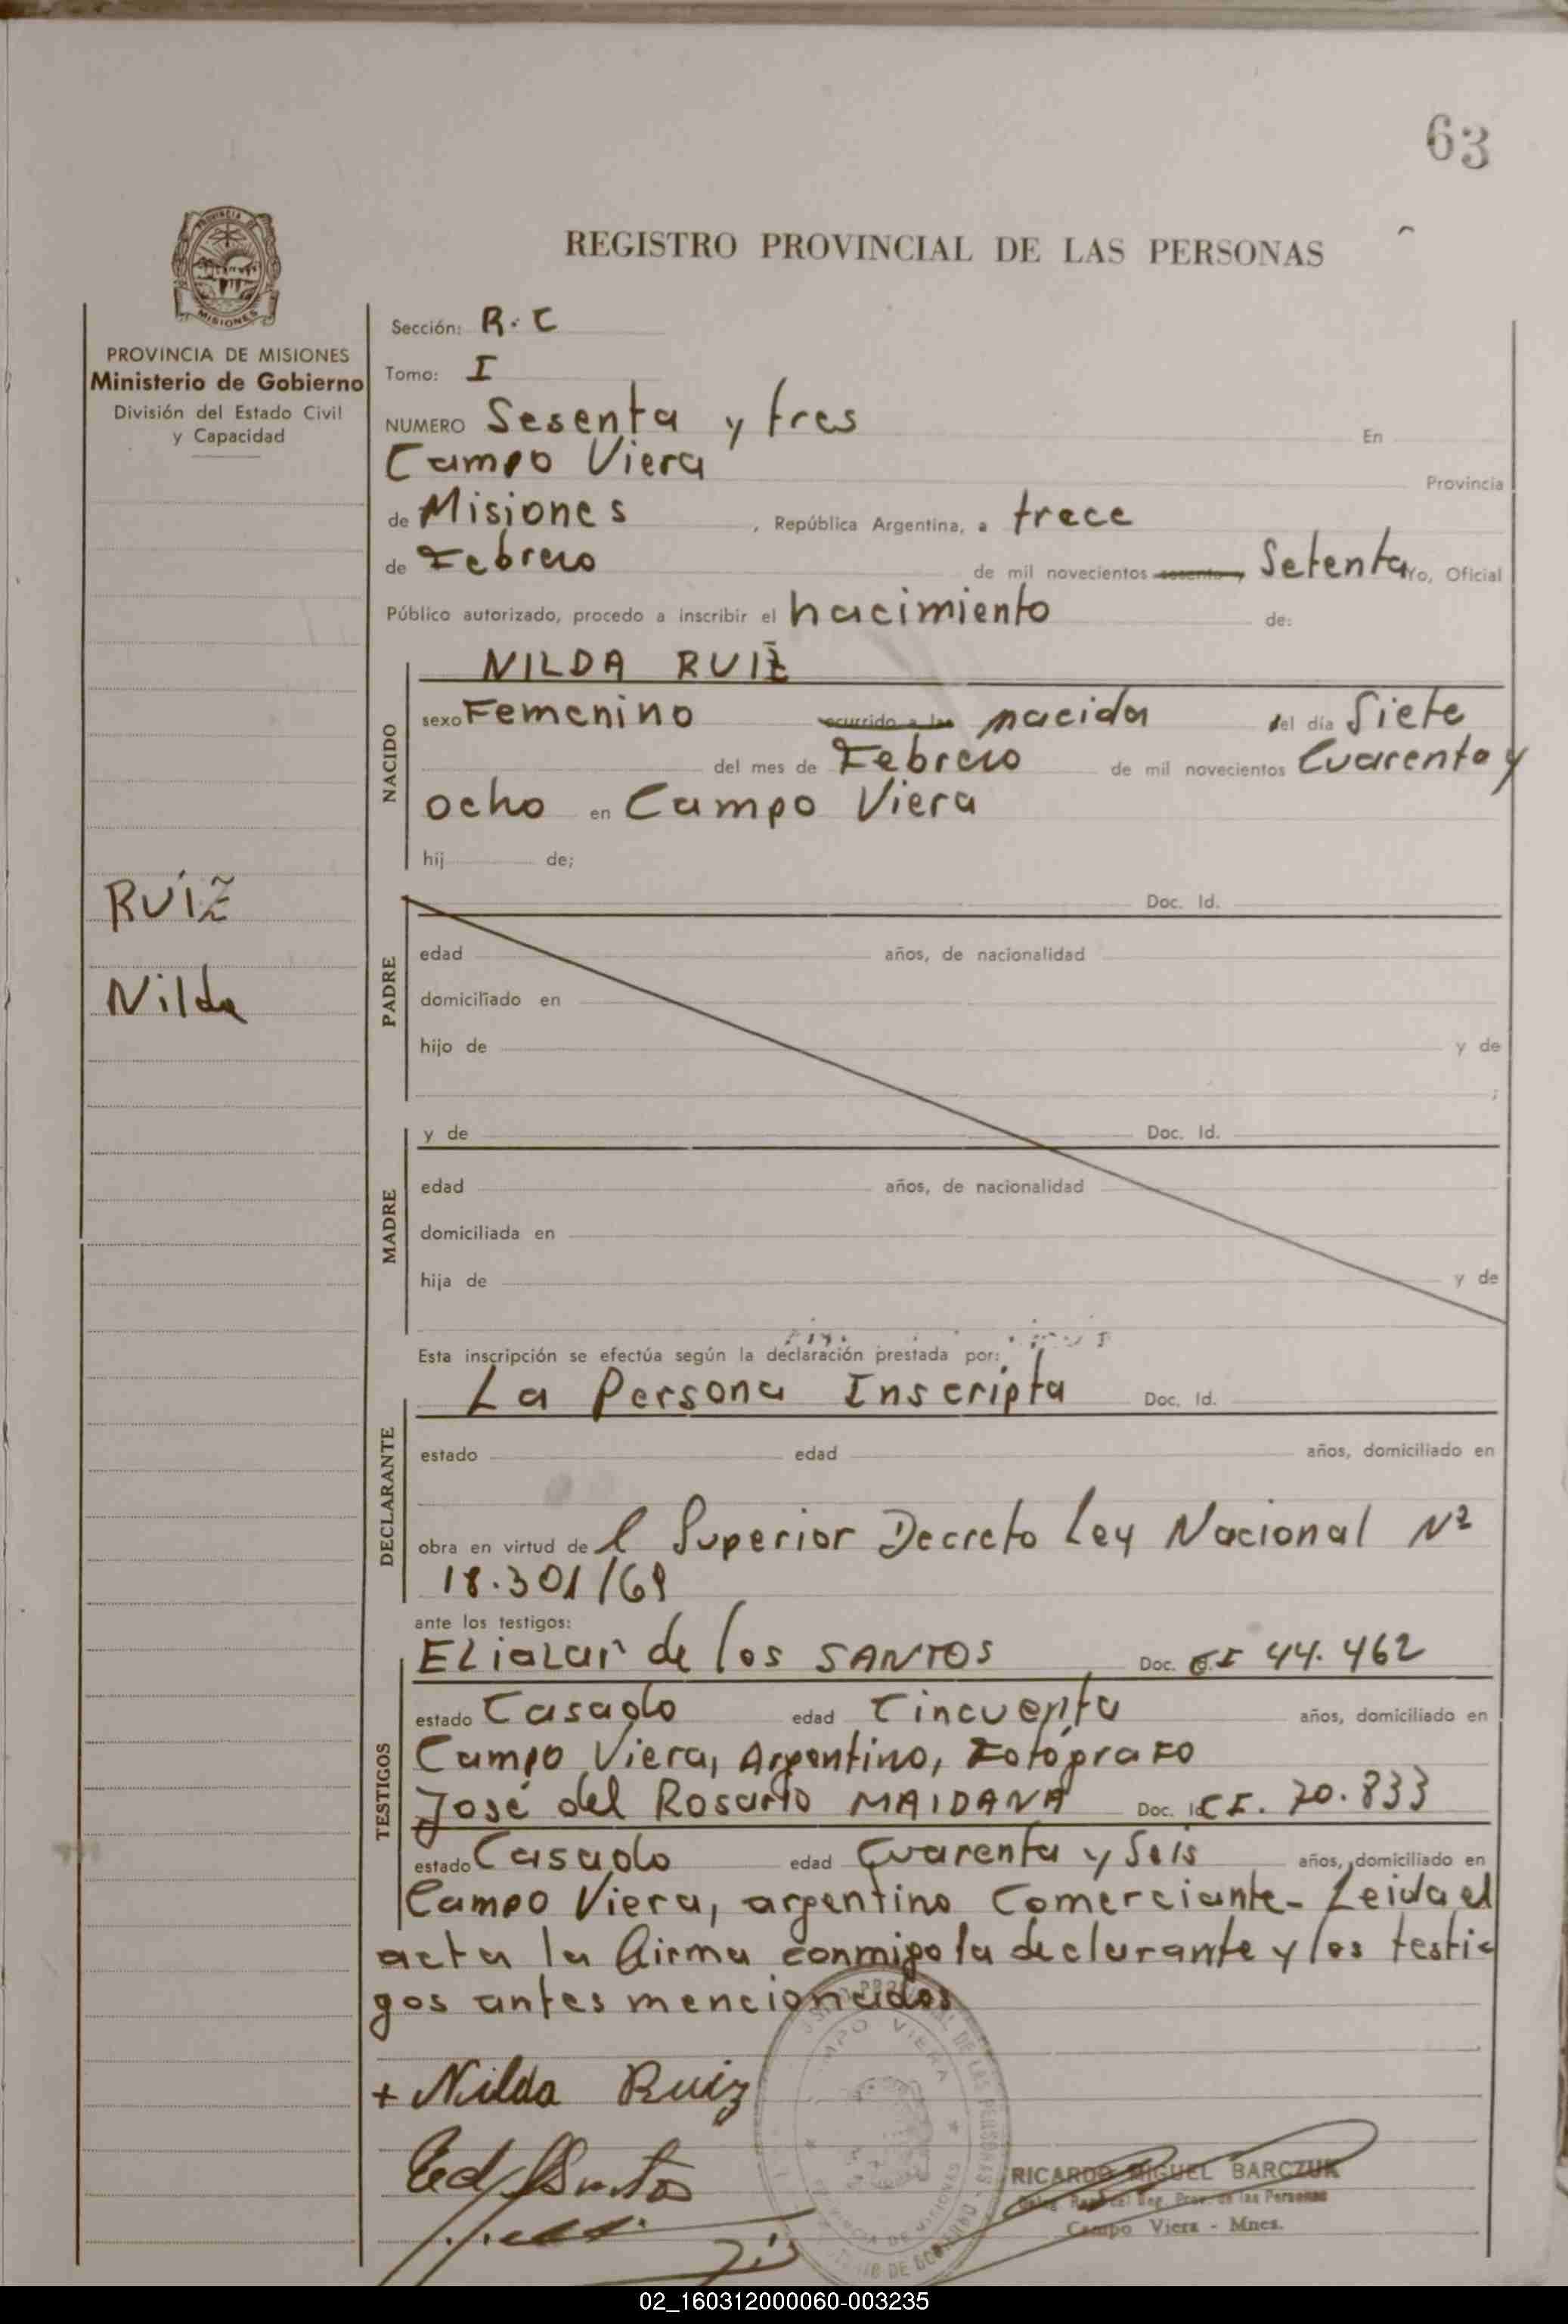 63
REGISTRO PROVINCIAL DE LAS PERSONAS
PROVINCIA DE MISIONES
Ministerio de Gobierno
División del Estado Civil
y Capacidad
Sección: R. C
Tomo: I
NUMERO Sesenta y tres En
Campo Viera Provincia
de Misiones , República Argentina, a trece
de Febrero de mil novecientos sesenta y Setenta Yo, Oficial
Público autorizado, procedo a inscribir el nacimiento de:
NILDA RUIZ
NACIDO
sexo Femenino ocurrido a las nacida del día Siete
del mes de Febrero de mil novecientos Cuarenta y
ocho en Campo Viera
hij de;
RUIZ
Nilda
PADRE
Doc. Id.
edad años, de nacionalidad
domiciliado en
hijo de y de
;
MADRE
y de Doc. Id.
edad años, de nacionalidad
domiciliada en
hija de y de
Esta inscripción se efectúa según la declaración prestada por:
La Persona Inscripta Doc. Id.
DECLARANTE
estado edad años, domiciliado en
obra en virtud de l Superior Decreto Ley Nacional Nº
18.301/69
ante los testigos:
TESTIGOS
ELiazar de los SANTOS Doc. C.I 44.462
estado Casado edad Cincuenta años, domiciliado en
Campo Viera, Argentino, Fotógrafo
José del Rosario MAIDANA Doc. Id CI. 70.833
estado Casado edad Cuarenta y Seis años, domiciliado en
Campo Viera, argentino Comerciante- Leida el
acta la firma conmigo la declarante y los testi
gos antes mencionados
+ Nilda Ruiz
RICARDO MIGUEL BARCZUK
Campo Viera - Mnes.
02_160312000060-003235